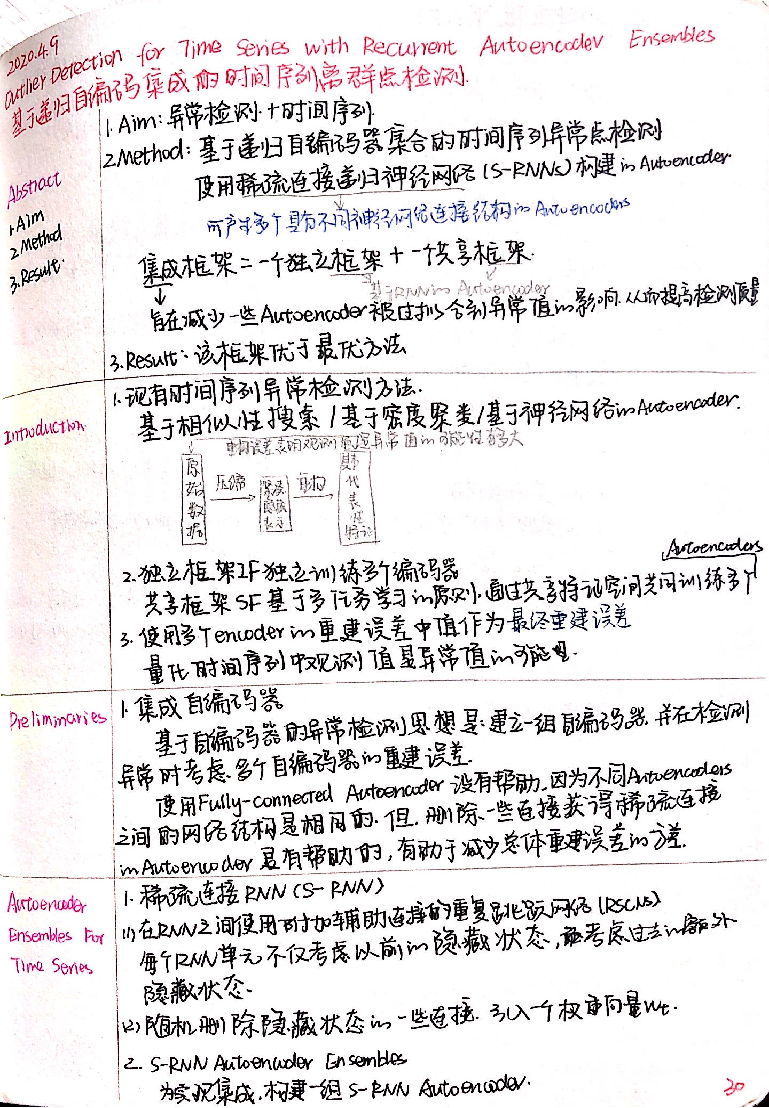 2020.4.9
Outlier Detection for Time Series with Recurrent Autoencoder Ensembles
基于递归自编码集成的时间序列离群点检测
Abstract
1. Aim
2. Method
3. Result.
1. Aim: 异常检测+时间序列
2. Method: 基于递归自编码器集合的时间序列异常点检测
使用稀疏连接递归神经网络(S-RNNs)构建in Autoencoder.
可产生多个具有不同神经网络连接结构in Autoencoders
集成框架=一个独立框架+一个共享框架.
基于RNN in Autoencoder
旨在减少一些Autoencoder被过拟合到异常值in影响.从而提高检测质量
3. Result: 该框架优于最优方法
Introduction
1. 现有时间序列异常检测方法.
基于相似性搜索/基于密度聚类/基于神经网络in Autoencoder.
重构误差表明观测值是异常值in可能性多大
原始数据
压缩
重构
代表性特征
2. 独立框架IF独立训练多个编码器
Autoencoders
共享框架SF基于多任务学习in原则.通过共享特征空间共同训练多个
3. 使用多个encoder in重建误差中值作为最终重建误差
量化时间序列中观测值是异常值in可能性.
Preliminaries
1. 集成自编码器
基于自编码器的异常检测思想是:建立一组自编码器.并在检测
异常时考虑多个自编码器in重建误差.
使用Fully-connected Autoencoder没有帮助.因为不同Autoencoders
之间的网络结构是相同的.但.删除一些连接获得稀疏连接
in Autoencoder是有帮助的,有助于减少总体重建误差in方差.
Autoencoder
Ensembles For
Time Series
1. 稀疏连接RNN(S-RNN)
(1)在RNN之间使用附加辅助连接的重复跳跃网络(RSCNs)
每个RNN单元不仅考虑以前in隐藏状态,还考虑过去in额外
隐藏状态.
(2)随机删除隐藏状态in一些连接.引入一个权重向量wt.
2. S-RNN Autoencoder Ensembles
为实现集成,构建一组S-RNN Autoencoder.
30